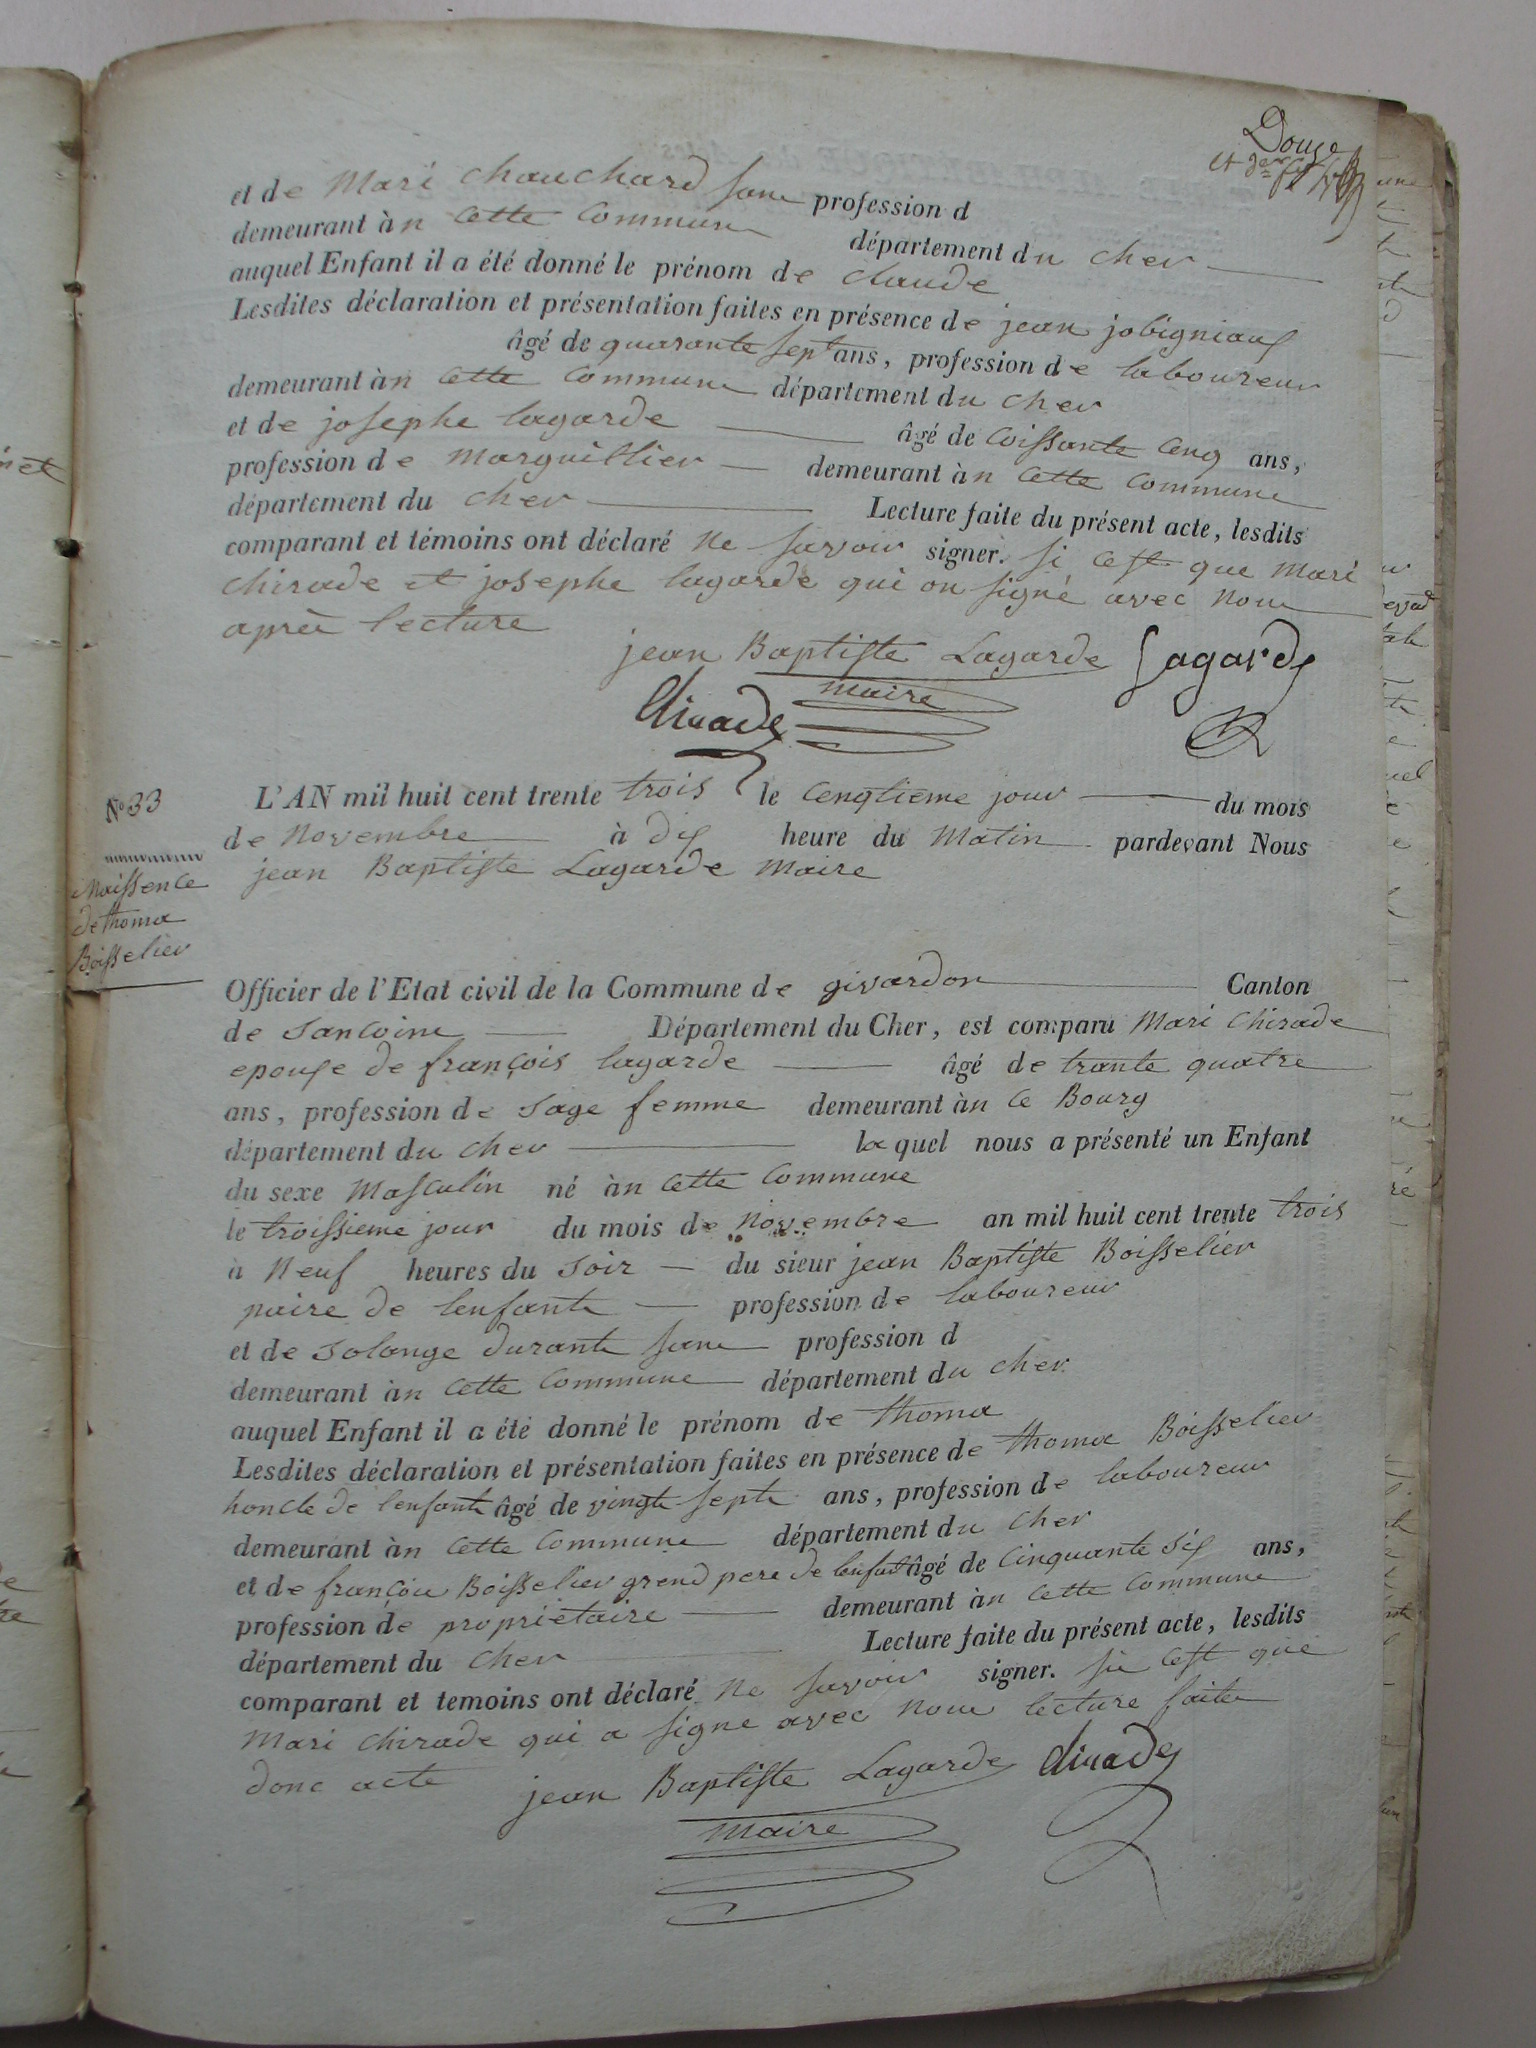 Douze
et der
et de Mari Chauchard sans profession d
demeurant àn cette Commune département du cher
auquel Enfant il a été donné le prénom de claude
Lesdites déclaration et présentation faites en présence de jean jobigniaux
âgé de quarante sept ans, profession de laboureur
demeurant àn cette Commune département du cher
et de josephe lagarde âgé de coissante cenq ans,
profession de Marguillier demeurant àn cette Commune
département du cher Lecture faite du présent acte, lesdits
comparant et témoins ont déclaré ne savoir signer. si cest que Mari
chirade et josephe lagarde qui on signé avec nous
après lecture
jean Baptiste Lagarde Lagarde
maire
chirade
N° 33
L'AN mil huit cent trente trois le cenqtieme jour du mois
de Novembre à dix heure du Matin pardevant Nous
jean Baptiste Lagarde Maire
Naissence
de thoma
Boisselier
Officier de l'Etat civil de la Commune de givardon Canton
de Sancoins Département du Cher, est comparu Mari chirade
epouse de françois lagarde âgé de trante quatre
ans, profession de Sage femme demeurant àn ce Bourg
département du cher laquel nous a présenté un Enfant
du sexe Masculin né àn cette Commune
le troissieme jour du mois de Novembre an mil huit cent trente trois
à Neuf heures du Soir du sieur jean Baptiste Boisselier
paire de lenfante profession de laboureur
et de Solange durante sans profession d
demeurant àn cette Commune département du cher
auquel Enfant il a été donné le prénom de thoma
Lesdites déclaration et présentation faites en présence de thoma Boisselier
honcle de lenfante âgé de vingte septe ans, profession de laboureur
demeurant àn cette Commune département du Cher
et de françois Boisselier grend pere de lenfant âgé de Cinquante six ans,
profession de propriétaire demeurant àn cette Commune
département du Cher Lecture faite du présent acte, lesdits
comparant et temoins ont déclaré ne savoir signer. si cest que
Mari chirade qui a signe avec nous lecture faite
donc acte jean Baptiste Lagarde chirade
maire